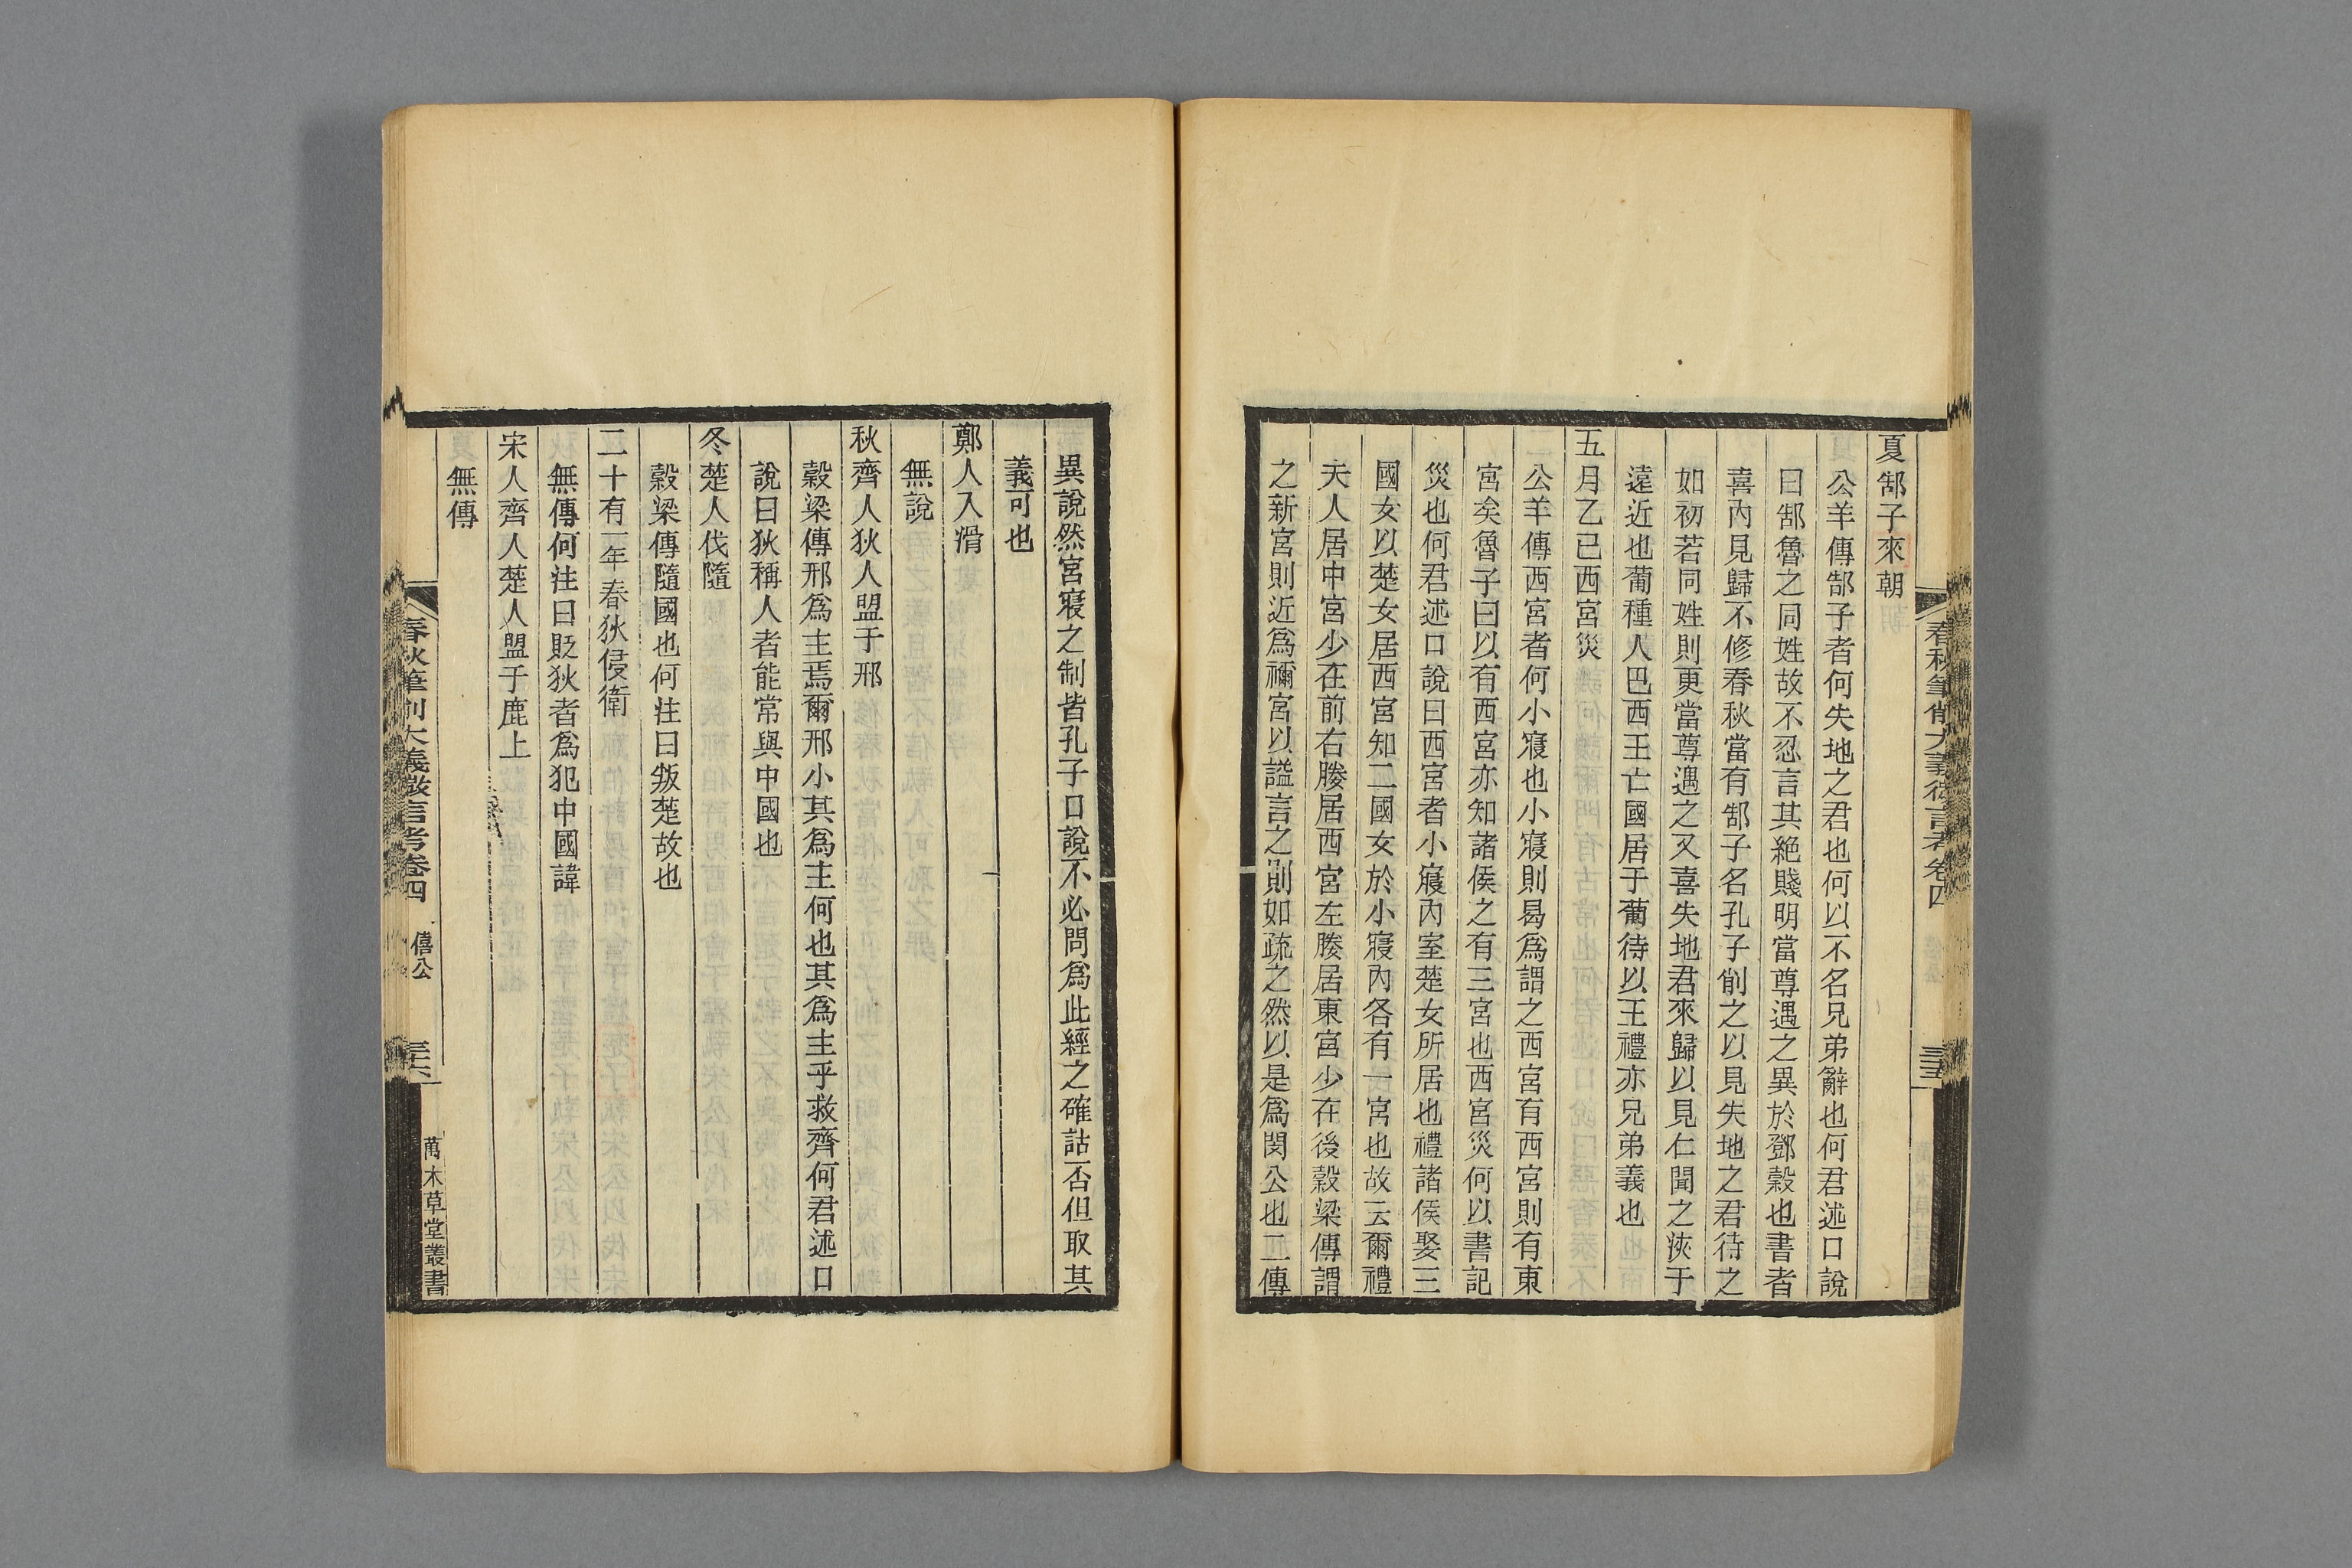 夏郜子來朝
公羊傳郜子者何失地之君也何以不名兄弟辭也何君述口說
曰郜魯之同姓故不忍言其絶賤明當尊遇之異於鄧穀也書者
喜內見歸不修春秋當有郜子名孔子削之以見失地之君待之
如初若同姓則更當尊遇之又喜失地君來歸以見仁聞之浹于
遠近也葡種人巴西王亡國居于葡待以王禮亦兄弟義也
五月乙巳西宮災
公羊傳西宮者何小寢也小寢則曷爲謂之西宮有西宮則有東
宮矣魯子曰以有西宮亦知諸侯之有三宮也西宮災何以書記
災也何君述口說曰西宮者小寢內室楚女所居也禮諸侯娶三
國女以楚女居西宮知二國女於小寢內各有一宮也故云爾禮
夫人居中宮少在前右媵居西宮左媵居東宮少在後穀梁傳謂
之新宮則近爲禰宮以謚言之則如疏之然以是爲閔公也二傳
春秋筆削大義微言考卷四
三十五
異說然宮寢之制皆孔子口說不必問爲此經之確詁否但取其
義可也
鄭人入滑
無說
秋齊人狄人盟于邢
穀梁傳邢爲主焉爾邢小其爲主何也其爲主乎救齊何君述口
說曰狄稱人者能常與中國也
冬楚人伐隨
穀梁傳隨國也何注曰叛楚故也
二十有一年春狄侵衛
無傳何注曰貶狄者爲犯中國諱
宋人齊人楚人盟于鹿上
無傳
春秋筆削大義微言考卷四 僖公
三十六
萬木草堂叢書